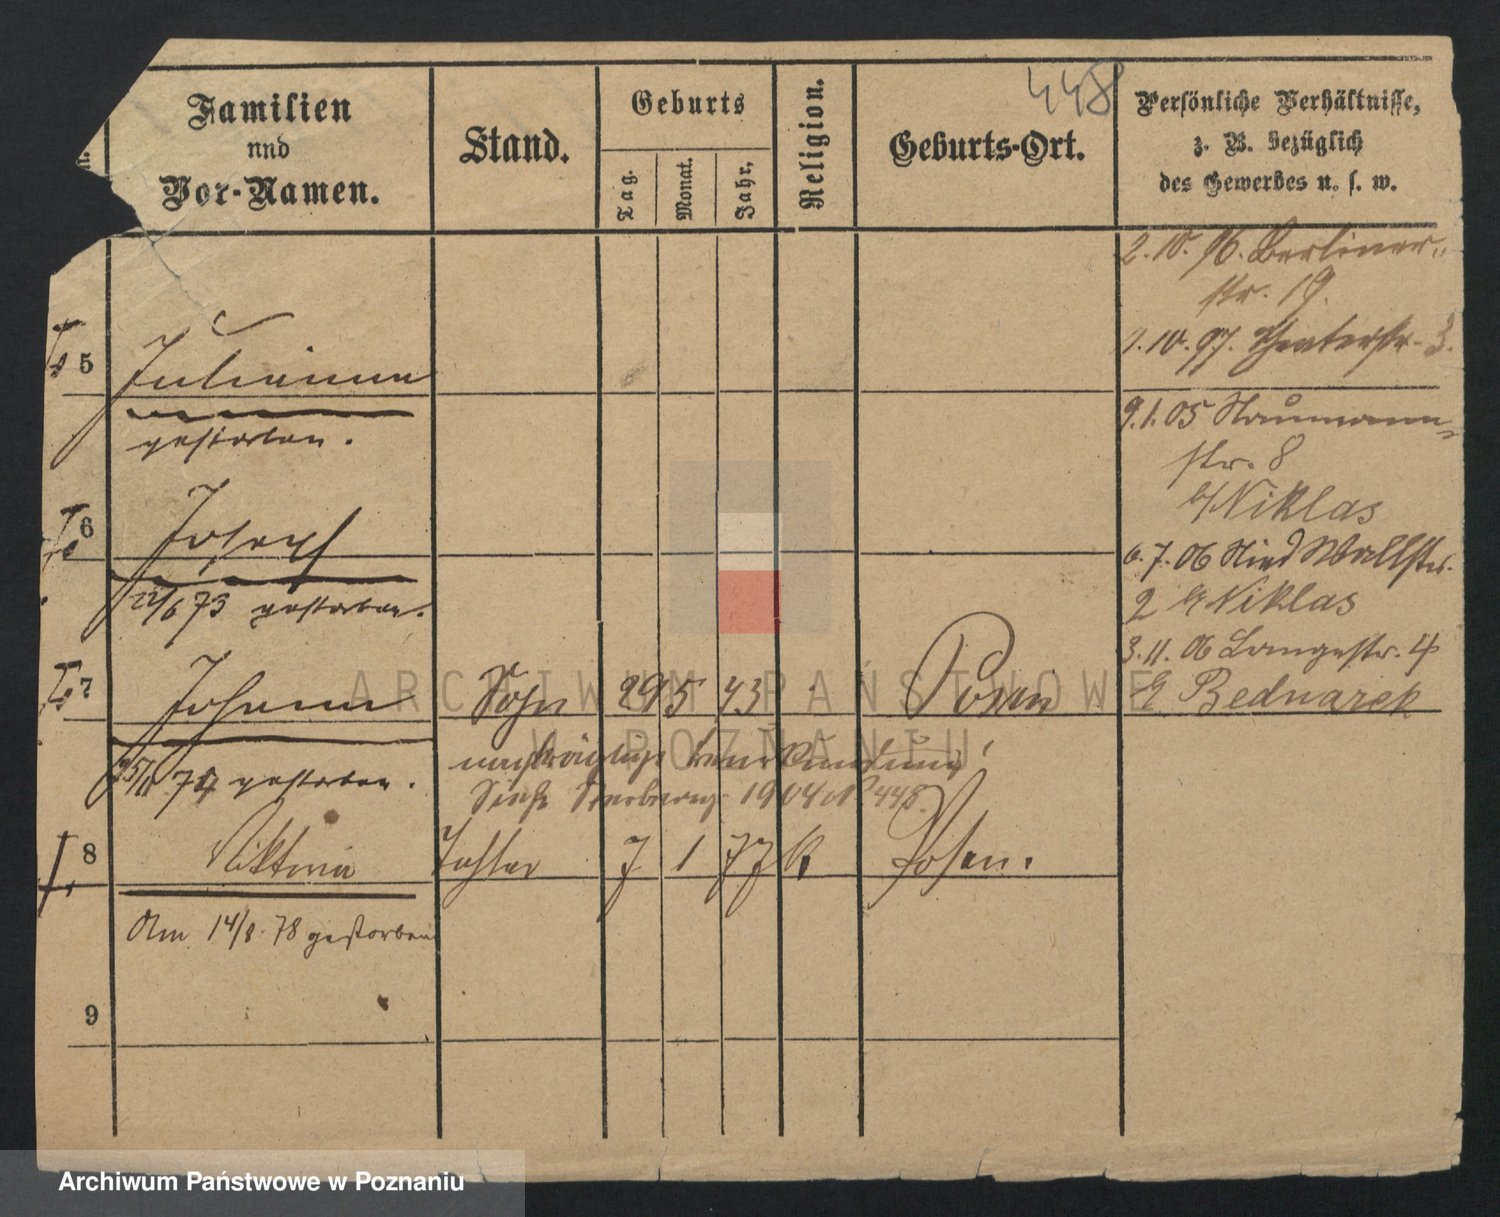 448
Familien
und
Vor-Namen.
Stand.
Geburts
Tag.
Monat.
Jahr.
Religion.
Geburts-Ort.
Persönliche Verhältnisse,
z. B. bezüglich
des Gewerbes u. s. w.
2.10.96. Berliner-
str. 19.
1.10.97. Theaterstr. 3.
5
Julianna
gestorben.
9.1.05 Naumann-
str. 8
b/ Niklas
6
Joseph
22/6 73 gestorben.
6.7.06 Nied Wallstr.
2 b/ Niklas
3.11.06 Langestr. 4
b/ Bednarek
7
Johann
Sohn
29
5
73
Posen
gestorben.
nachträgliche
Siehe 1904 N 448.
8
Viktoria
Tochter
7
1
77
k
Posen.
Am 14/8. 78 gestorben
9
ARCHIWUM PAŃSTWOWE
W POZNANIU
Archiwum Państwowe w Poznaniu